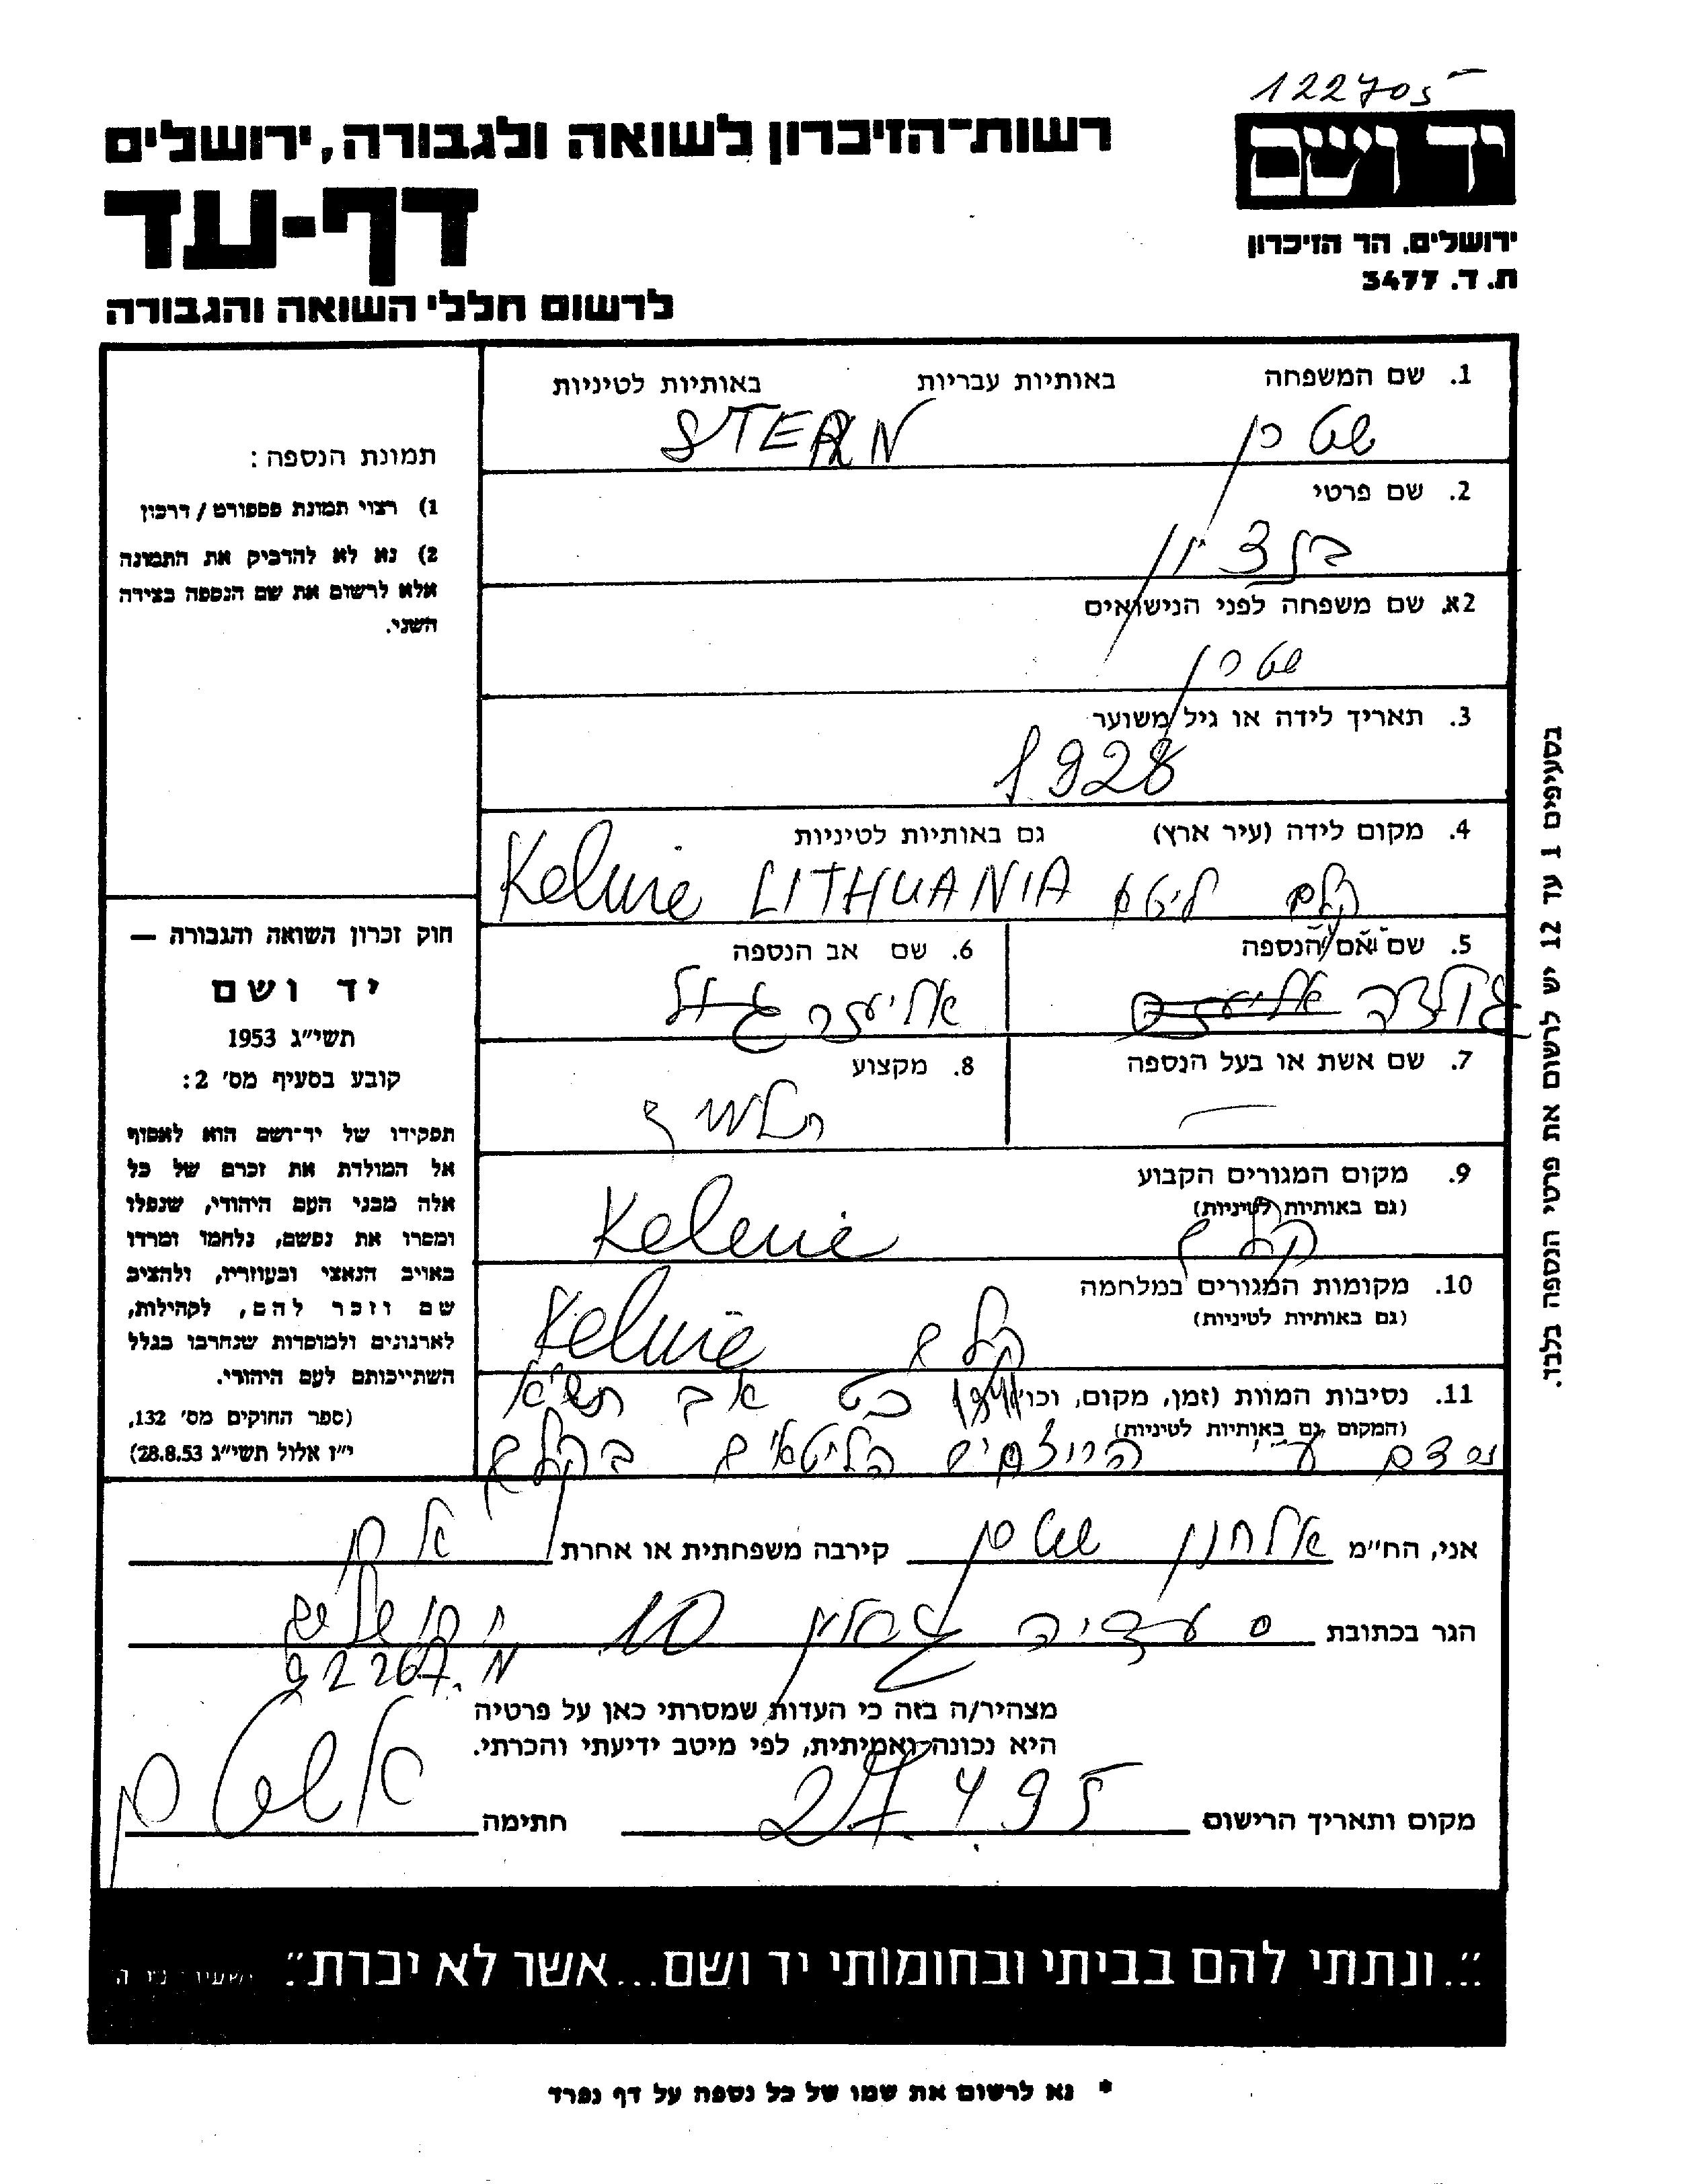 122705
יד ושם
רשות-הזיכרון לשואה ולגבורה, ירושלים
דף-עד
ירושלים, הר הזיכרון
ת. ד. 3477
לרשום חללי השואה והגבורה
1. שם המשפחה באותיות עבריות באותיות לטיניות
שטרן STERN
2. שם פרטי
בן ציון
2א. שם משפחה לפני הנישואים
שטרן
3. תאריך לידה או גיל משוער
1928
4. מקום לידה (עיר ארץ) גם באותיות לטיניות
קלם ליטא Kelmė LITHUANIA
5. שם אם הנספה
גולדה
6. שם אב הנספה
אליעזר
7. שם אשת או בעל הנספה
—
8. מקצוע
תלמיד
9. מקום המגורים הקבוע
(גם באותיות לטיניות)
קלם Kelmė
10. מקומות המגורים במלחמה
(גם באותיות לטיניות)
קלם Kelmė
11. נסיבות המוות (זמן, מקום, וכו' 1941 כט אב תש"א
(המקום גם באותיות לטיניות)
נרצח ע"י הרוצחים הליטאים בקלם
תמונת הנספה:
1) רצוי תמונת פספורט / דרכון
2) נא לא להדביק את התמונה
אלא לרשום את שם הנספה בצידה
השני.
חוק זכרון השואה והגבורה —
יד ושם
תשי"ג 1953
קובע בסעיף מס' 2:
תפקידו של יד-ושם הוא לאסוף
אל המולדת את זכרם של כל
אלה מבני העם היהודי, שנפלו
ומסרו את נפשם, נלחמו ומרדו
באויב הנאצי ובעוזריו, ולהציב
שם וזכר להם, לקהילות,
לארגונים ולמוסדות שנחרבו בגלל
השתייכותם לעם היהודי.
(ספר החוקים מס' 132,
י"ז אלול תשי"ג 28.8.53)
בסעיפים 1 עד 12 יש לרשום את פרטי הנספה בלבד.
אני, הח"מ אלחנן שטרן קירבה משפחתית או אחרת אח
הגר בכתובת סעדיה גאון 10 ירושלים
92267
מצהיר/ה בזה כי העדות שמסרתי כאן על פרטיה
היא נכונה ואמיתית, לפי מיטב ידיעתי והכרתי.
מקום ותאריך הרישום 27.4.95 חתימה א שטרן
"...ונתתי להם בביתי ובחומותי יד ושם...אשר לא יכרת". ישעיהו נו ה
* נא לרשום את שמו של כל נספה על דף נפרד